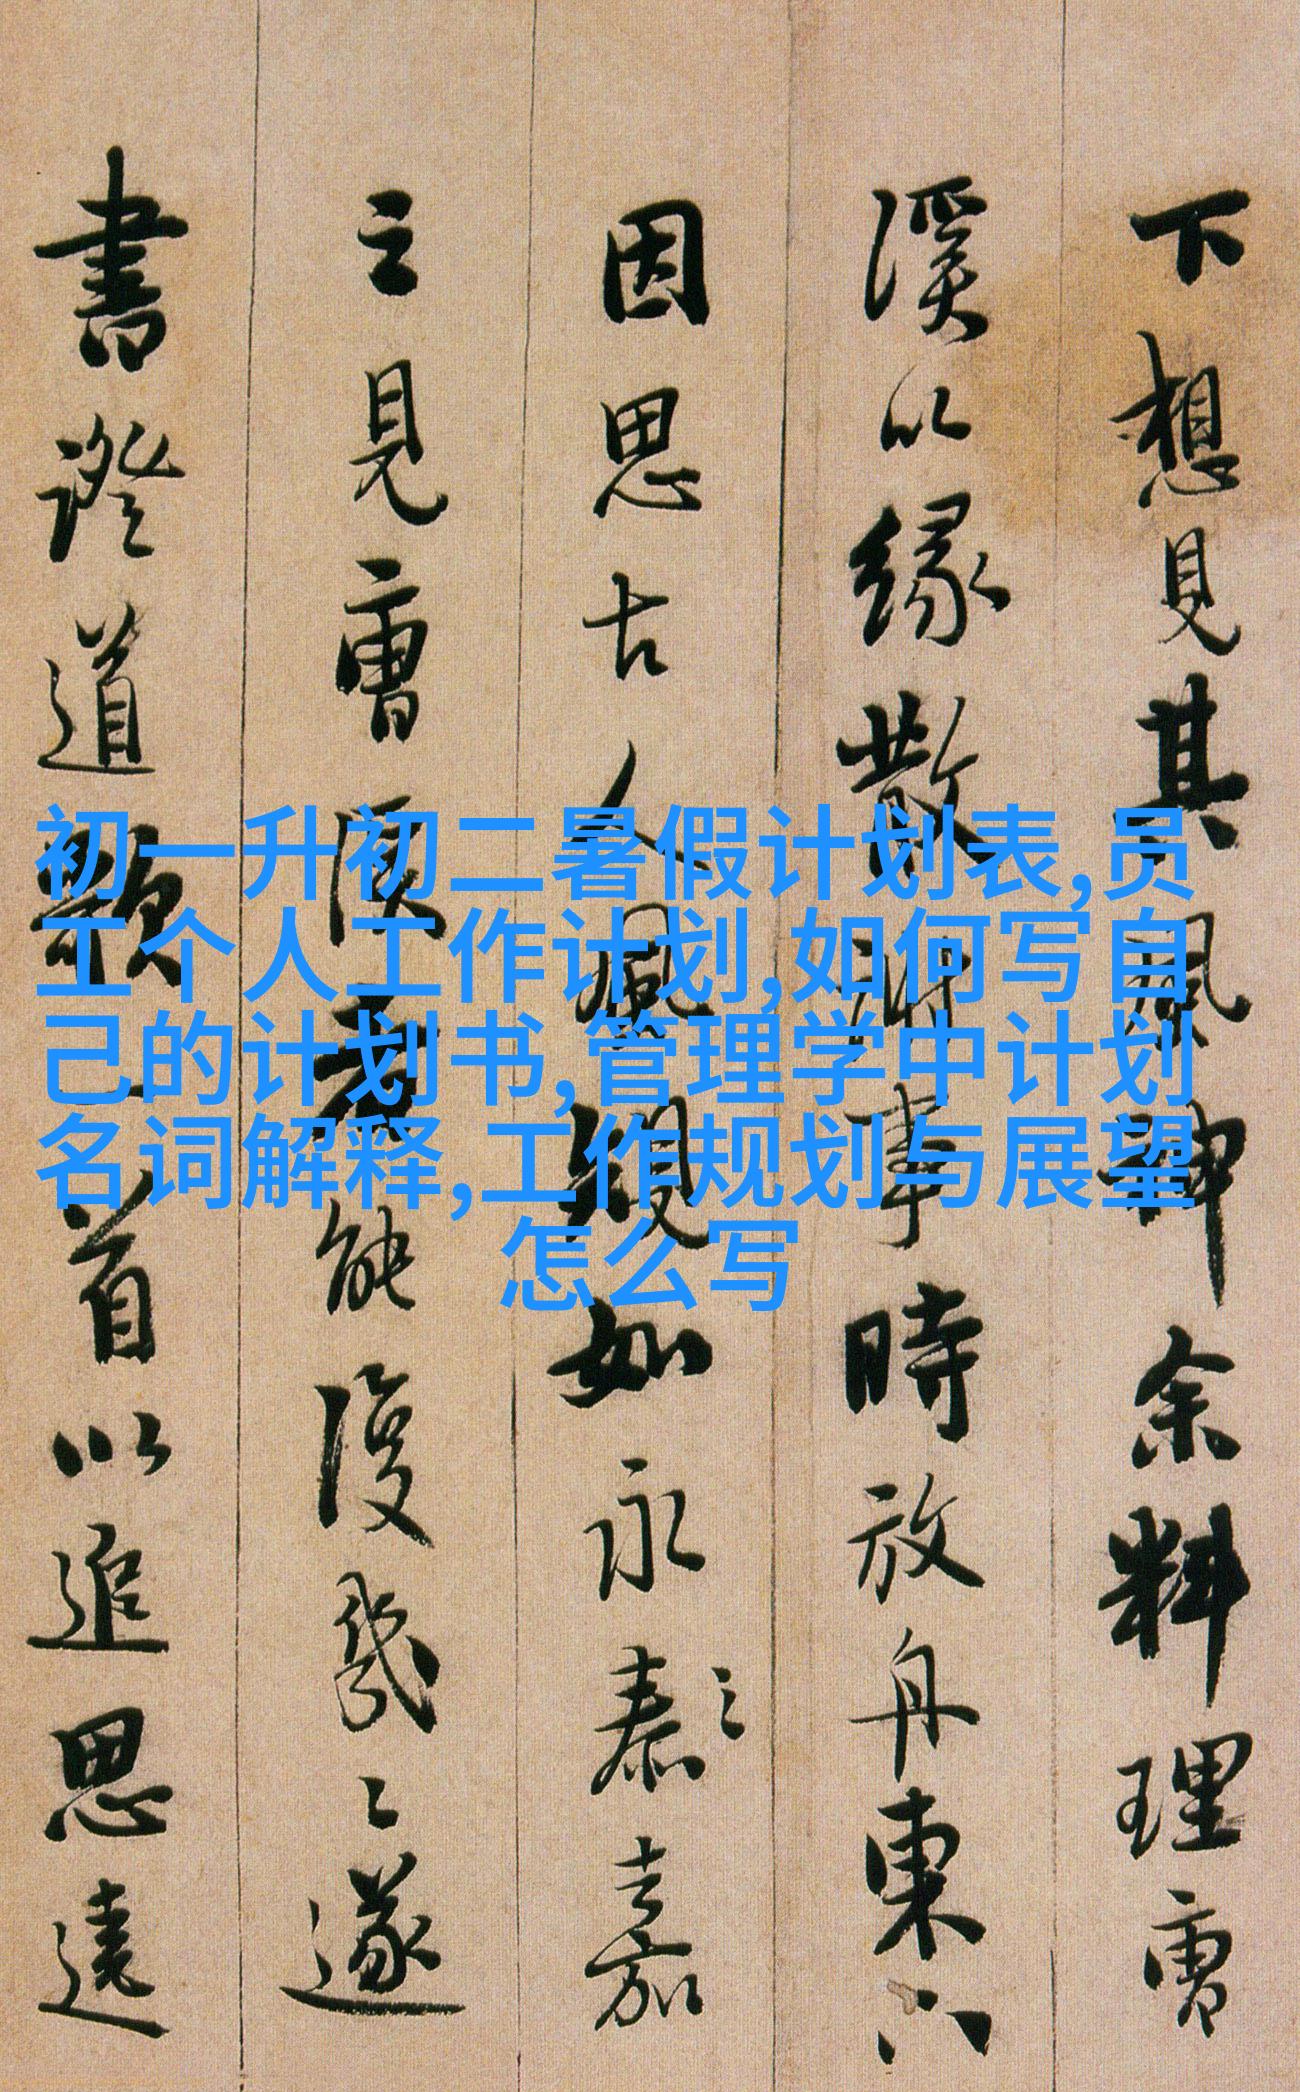 下想見其風神余料理雪
溪以緣散事時放舟東
因思古人風規如永泰之嘉
之見雪溪者能復幾遂
書證道歌一首以追思遠
初一升初二暑假计划表,员
工个人工作计划,如何写自
己的计划书,管理学中计划
名词解释,工作规划与展望
怎么写